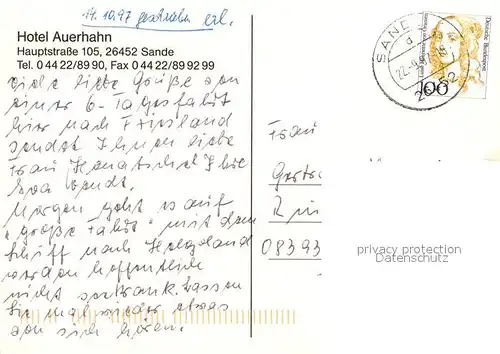 14.10.97 geschrieben erl.
Hotel Auerhahn
Hauptstraße 105, 26452 Sande
Tel. 0 44 22/89 90, Fax 0 44 22/89 92 99
Viele liebe Grüße von
einer 6-Tagesfahrt
hier nach Friesland
sendet Ihnen liebe
Frau Ihre
Morgen geht es auf
"große Fahrt" mit dem
Schiff nach Helgoland
werden hoffentlich
nicht seekrank. Lassen
Sie mal wieder etwas
von sich hören.
SANDE
Deutsche Bundespost
100
Frau
08393
privacy protection
Datenschutz